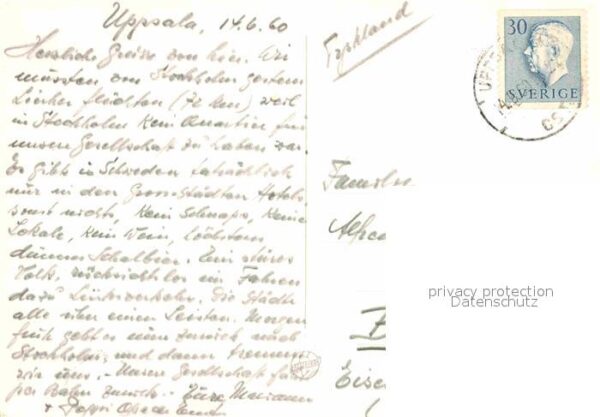 Uppsala, 14.6.60
Herzliche Grüsse von hier. Wir
müssten von Stockholm gestern
hierher flüchten (72 km) weil
in Stockholm kein Quartier für
unsere Gesellschaft zu haben war.
Es gibt in Schweden tatsächlich
nur in den Grossstädten Hotels
sonst nichts, kein Schnaps, keine
Lokale, kein Wein, höchstens
dünnes Schalbier. Ein stures
Volk, rücksichtslos im Fahren
dazu Linksverkehr. Die Städte
alle über einen Leisten. Morgen
früh geht es nun zurück nach
Stockholm und dann trennen
wir uns. - Unsere Gesellschaft fährt
per Bahn zurück. - Eure Mariann
+ Pappi
Tyskland
30
SVERIGE
UPPSALA
Familie
Alfred
Eise
privacy protection
Datenschutz